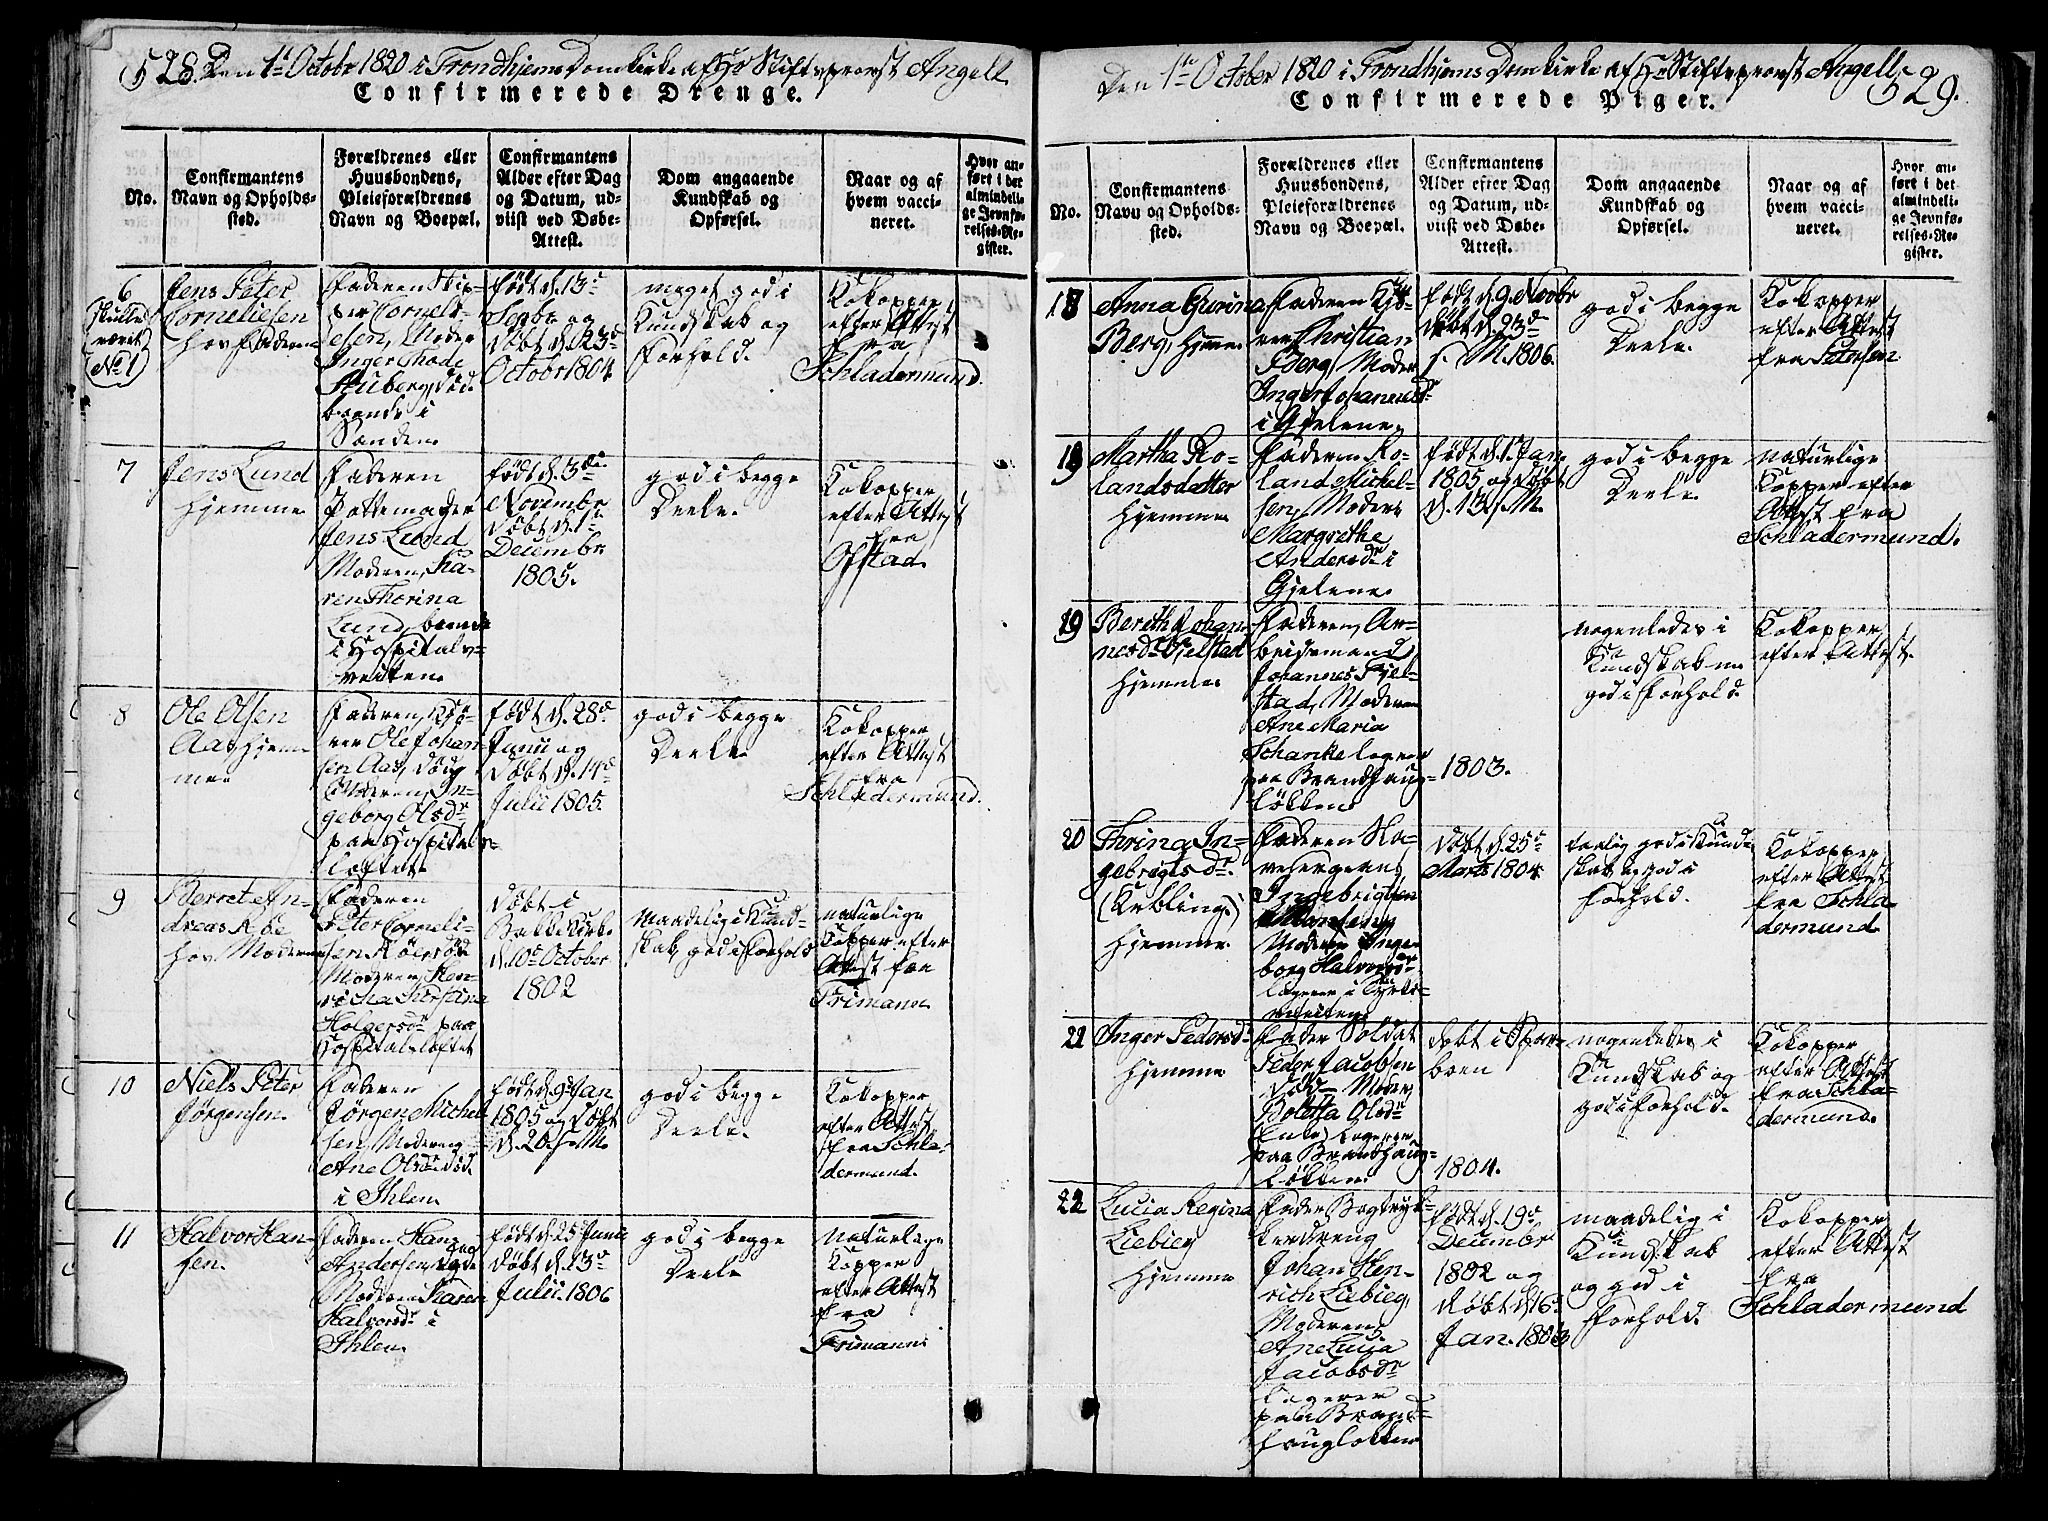 528. Den 1te Octobr 1820 i Trondhjems Domkirke af Hr Stiftsprovst Angell
Confirmerede Drenge.
No.
Confirmantens
Navn og Opholds-
sted.
Forældrenes eller
Huusbondens,
Pleieforældrenes
Navn og Boepæl.
Confirmantens
Alder efter Dag
og Datum, ud-
viist ved Døbe-
Attest.
Dom angaaende
Kundskab og
Opførsel.
Naar og af
hvem vacci-
neret.
Hvor an-
ført i det
almindeli-
ge Jevnfø-
relses-Re-
gister.
6
skulle
været
No 1
Jens Peter
Corneliesen
hos Faderen
Faderen Skip-
per Corneli-
esen, Moder
Inger Thode
Stuberg, død
boende i
Sanden
født d. 13de
Septbr og
døbt d. 23de
Octobr 1804
meget god i
Kundskab og
Forhold.
Kokopper
efter Attest
fra
Schladermund.
7
Jens Lund
hjemme
Faderen
Pottemager
Jens Lund
Moderen, Ka-
ren Thorina
Lund, boende
i Hospitals-
veiten
født d. 3die
November
døbt d. 1te
Decembr
1805.
god i begge
Deele.
Kokopper
efter Attest
fra
Ofstad.
8
Ole Olsen
Aas hjem-
me
Faderen,
Ole Johan-
sen Aas, død
Moderen, In-
geborg Olsdr
paa Hospitals-
løftet
født d. 28de
Junii og
døbt d. 14de
Julii 1805.
god i begge
Deele
Kokopper
efter Attest
fra
Schladermund.
9
Berret An-
dreas Röe
hos Moderen
Faderen
Peter Corneli-
sen Röe død
Moderen, Hen-
richa Kirstina
Holgersdr paa
Hospitalsløftet
døbt i
Bakke Kirke
d. 10de October
1802
maadelig i Kund-
skab, god i Forhold
naturlige
Kopper efter
Attest fra
Frimann
10
Niels Peter
Jörgensen.
Faderen
Jörgen Michel-
sen, Moderen
Ane Olsdr død
i Ihlen
født d. 9de Jan
1805 og døbt
d. 20. s. M.
god i begge
Deele.
Kokopper
efter Attest
fra Schla-
dermund.
11
Halvor Han-
sen.
Faderen Hans
Andersen
Moderen Karen
Halvorsdr i
Ihlen
født d. 25 Junii
døbt d. 13de
Julii 1806
god i begge
Deele
naturlige
Kopper
efter Attest
fra
Frimann
Den 1te October 1820 i Trondhjems Domkirke af Hr Stiftsprovst Angell 529.
Confirmerede Piger.
No.
Confirmantens
Navn og Opholds-
sted.
Forældrenes eller
Huusbondens,
Pleieforældrenes
Navn og Boepæl.
Confirmantens
Alder efter Dag
og Datum, ud-
viist ved Døbe-
Attest.
Dom angaaende
Kundskab og
Opførsel.
Naar og af
hvem vacci-
neret.
Hvor an-
ført i det
almindeli-
ge Jevnfø-
relses-Re-
gister.
Anna Gurina
Berg, hjemme
Faderen
Christian
Berg, Moder
Inger Johannesdr
i Gjelene
født d. 9 Novbr
døbt d. 23de
s. M. 1806.
god i begge
Deele.
Kokopper
efter Attest
fra Petersen
18
Martha Ro-
landsdatter
hjemme
Faderen Ro-
land Michel-
sen, Moderen
Margrethe
Andersdr i
Gjelene
født d. 1. Jan.
1805 og døbt
d. 13. s. M.
god i begge
Deele
naturlige
Kopper efter
Attest fra
Schladermund.
19
Bereth Johan-
nesdr Fjelstad
hjemme
Faderen, Ar-
beidsmand
Johannes Fjel-
stad, Moderen
Ane Maria
Schanke logerer
paa Brandhaug-
løkken
1803.
nogenledes i
Kundskab
god i Forhold
Kokopper
efter Attest.
20
Thrina In-
gebrigtsdr.
hjemme
Faderen
Ingebrigtsen
Moderen Inge-
borg Halvorsdr
logerer i
veiten
døbt d. 25de
Marts 1804
god i Kund-
skab og god i
Forhold.
Kokopper
efter Attest
fra Schla-
dermund
21
Inger Pedersdr
hjemme
Fader Soldat
Peder Jacobsen
død Moder
Boletta Olsdr
(Enke) logerer
paa Brandhaug-
løkken
døbt i Spar-
boen
1804.
nogenledes i
Kundskab og
god i Forhold.
Kokopper
efter Attest
fra Schla-
dermund.
22
Lucia Regina
Liebieg
hjemme
Fader Bogtryk-
kerdreng
Johan Hen-
rich Liebieg,
Moderen
Ane Lucia
Jacobsdr
logerer
paa Brand-
haugløkken
født d. 19de
Decembr
1802 og
døbt d. 6te
Jan. 1803
maadelig i
Kundskab
og god i
Forhold.
Kokopper
efter Attest
fra
Schladermund